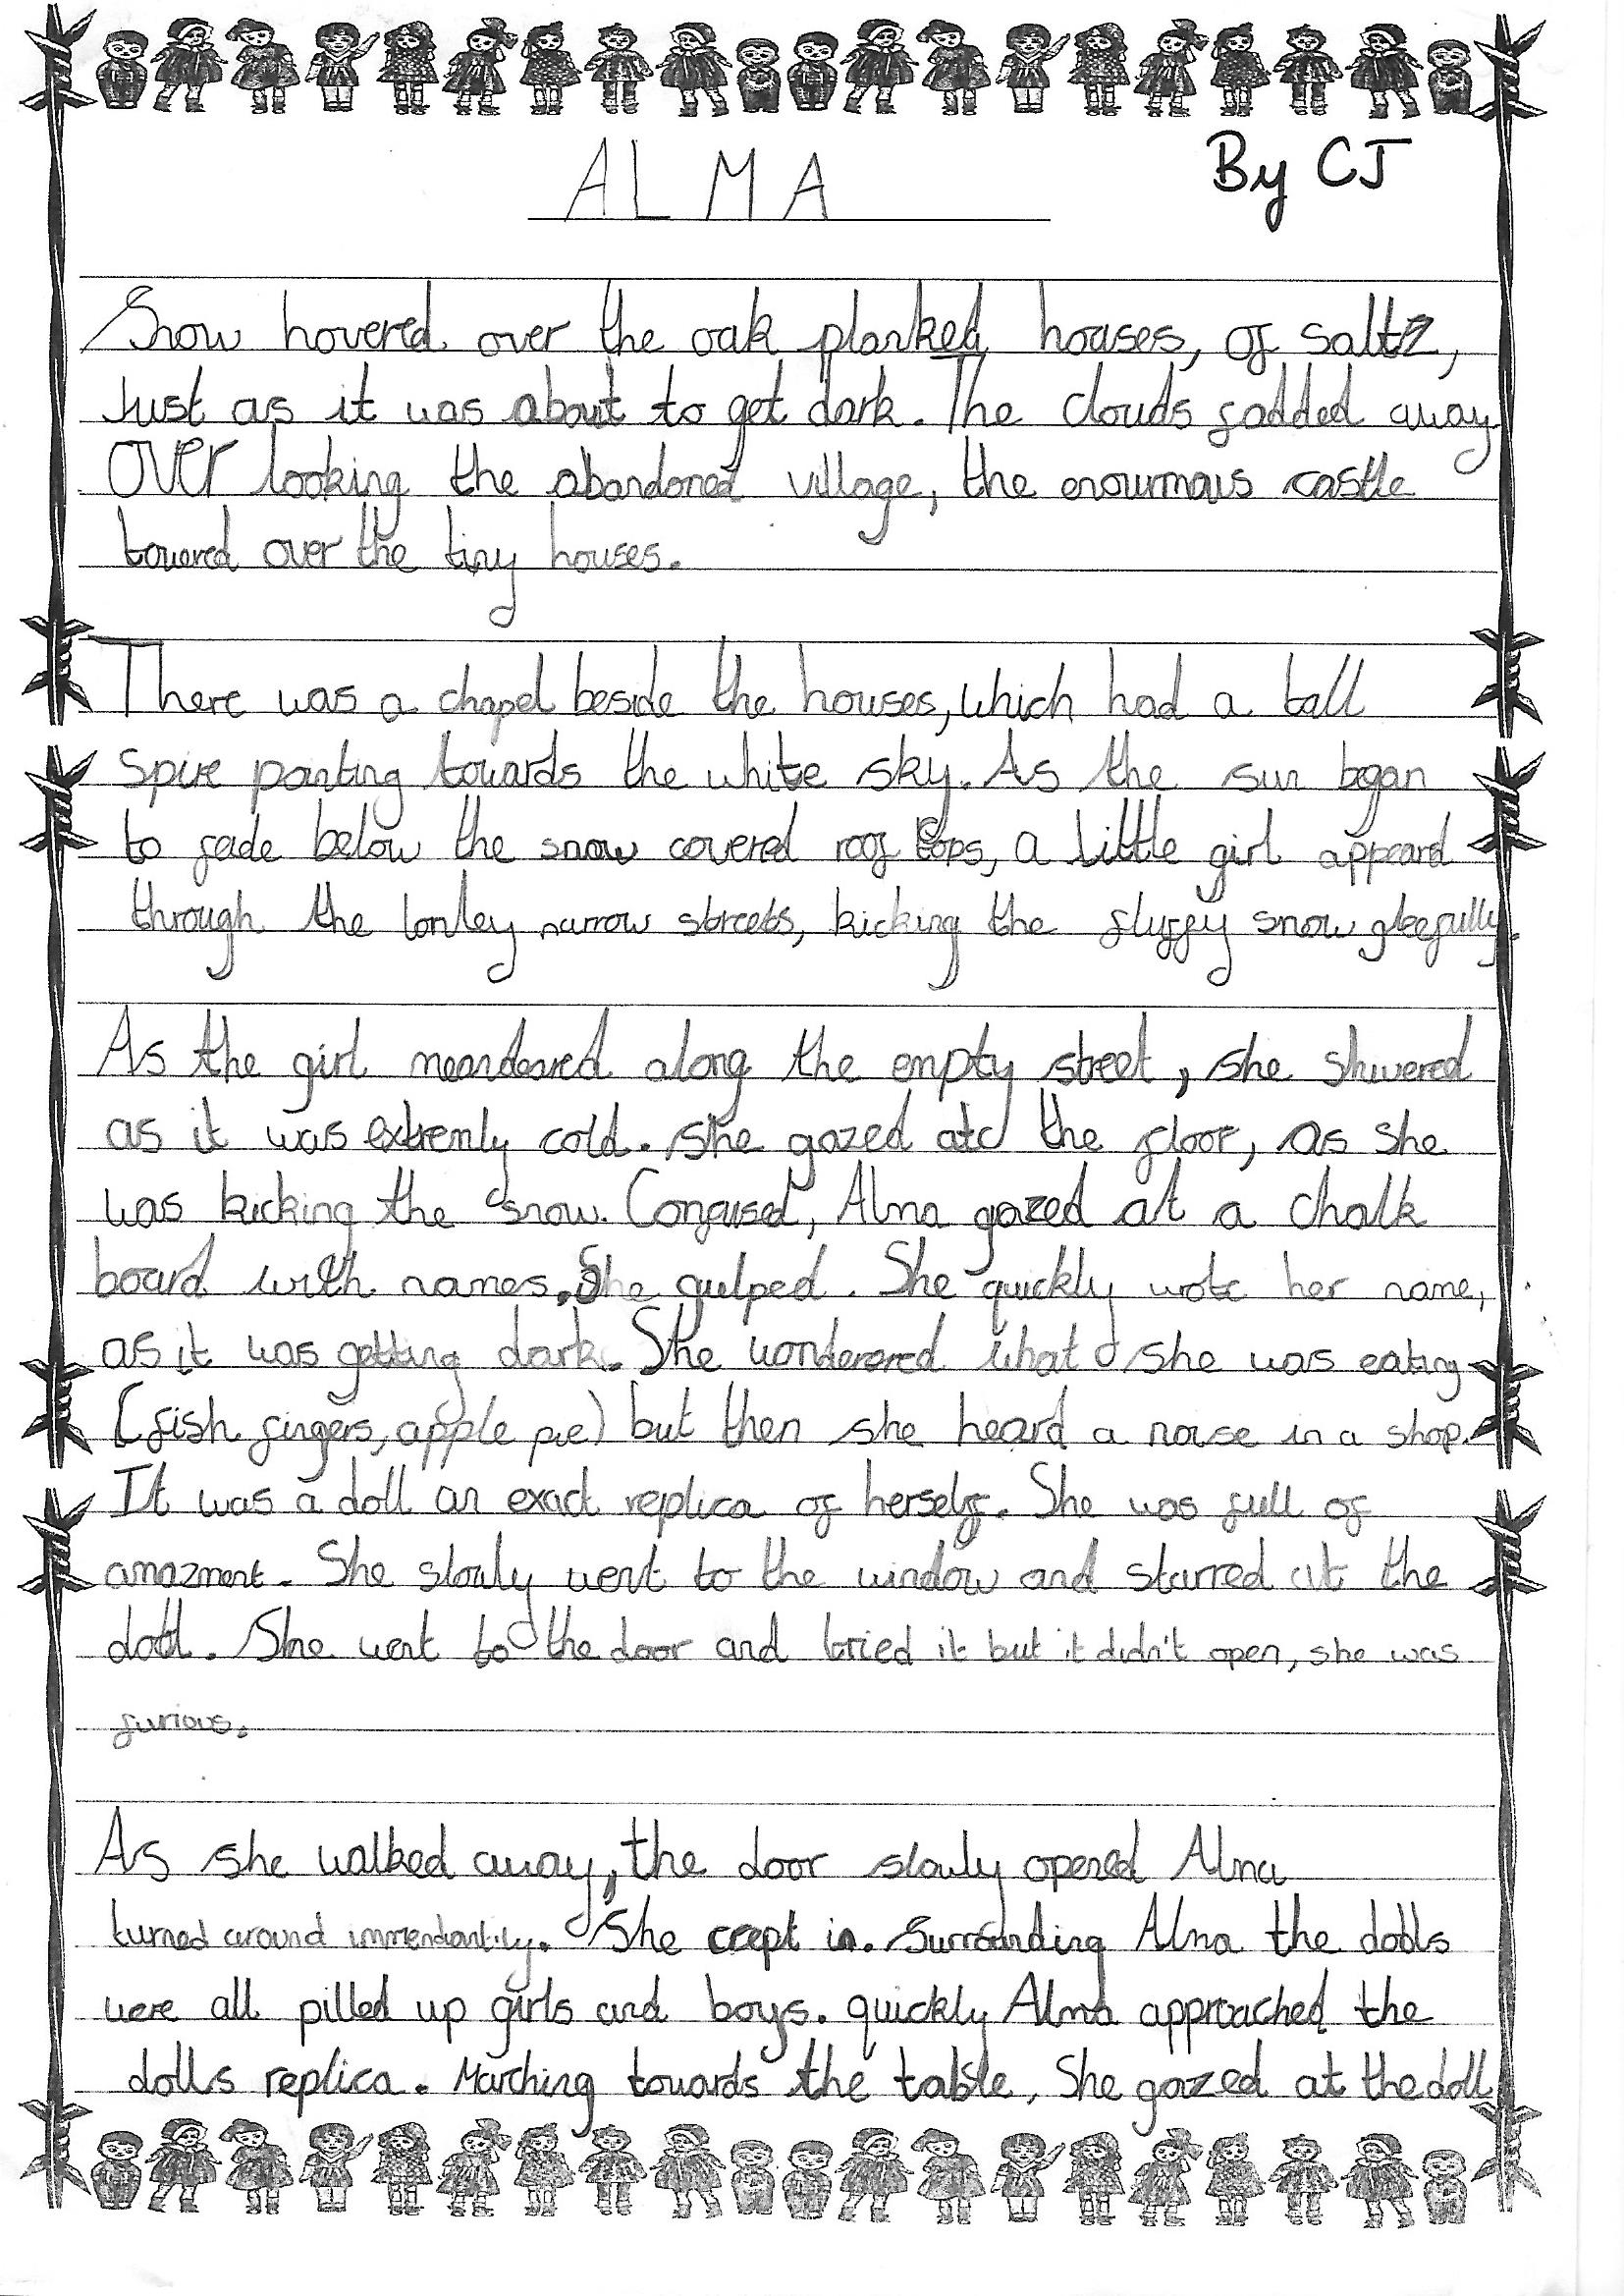 ALMA
By CJ
Snow hovered over the oak planked houses, of saltz,
Just as it was about to get dark. The clouds fadded away
over looking the abandoned village, the enourmous castle
towered over the tiny houses.
There was a chapel beside the houses, which had a tall
spire pointing towards the white sky. As the sun began
to fade below the snow covered roof tops, a little girl appeard
through the lonley narrow streets, kicking the fluffy snow gleefully.
As the girl meandeared along the empty street, she shivered
as it was extremly cold. She gazed at the floor, as she
was kicking the snow. Confused, Alma gazed at a chalk
board with names. She gulped. She quickly wote her name,
as it was getting dark. She wonderered what she was eating
(fish fingers, apple pie) but then she heard a noise in a shop.
It was a doll an exact replica of herself. She was full of
amazment. She slowly went to the window and starred at the
doll. She went to the door and tried it but it didn't open, she was
furious.
As she walked away, the door slowly opened Alma
turned around immendiantily. She crept in. Surrounding Alma the dolls
were all pilled up girls and boys. quickly Alma approached the
dolls replica. Marching towards the table, She gazed at the doll